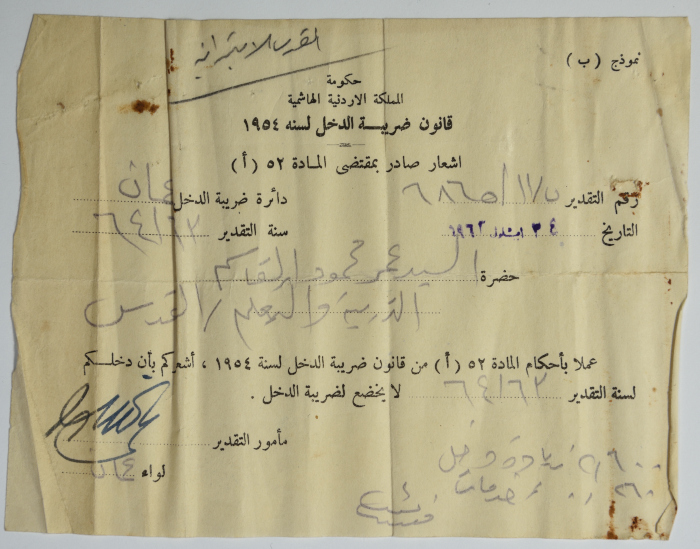 نموذج (ب)
القدس الابتدائية
حكومة
المملكة الاردنية الهاشمية
قانون ضريبة الدخل لسنه ١٩٥٤
اشعار صادر بمقتضى المادة ٥٢ (أ)
رقم التقدير
دائرة ضريبة الدخل عمان
التاريخ
سنة التقدير ٦٤/٦٣
حضرة السيد عمر محمود القاسم
التربية والتعليم / القدس
عملا بأحكام المادة ٥٢ (أ) من قانون ضريبة الدخل لسنة ١٩٥٤ ، أشعركم بأن دخلكم
لسنة التقدير ٦٤/٦٣ لا يخضع لضريبة الدخل .
مأمور التقدير
لواء عمان
زيادة دخل
خدمات